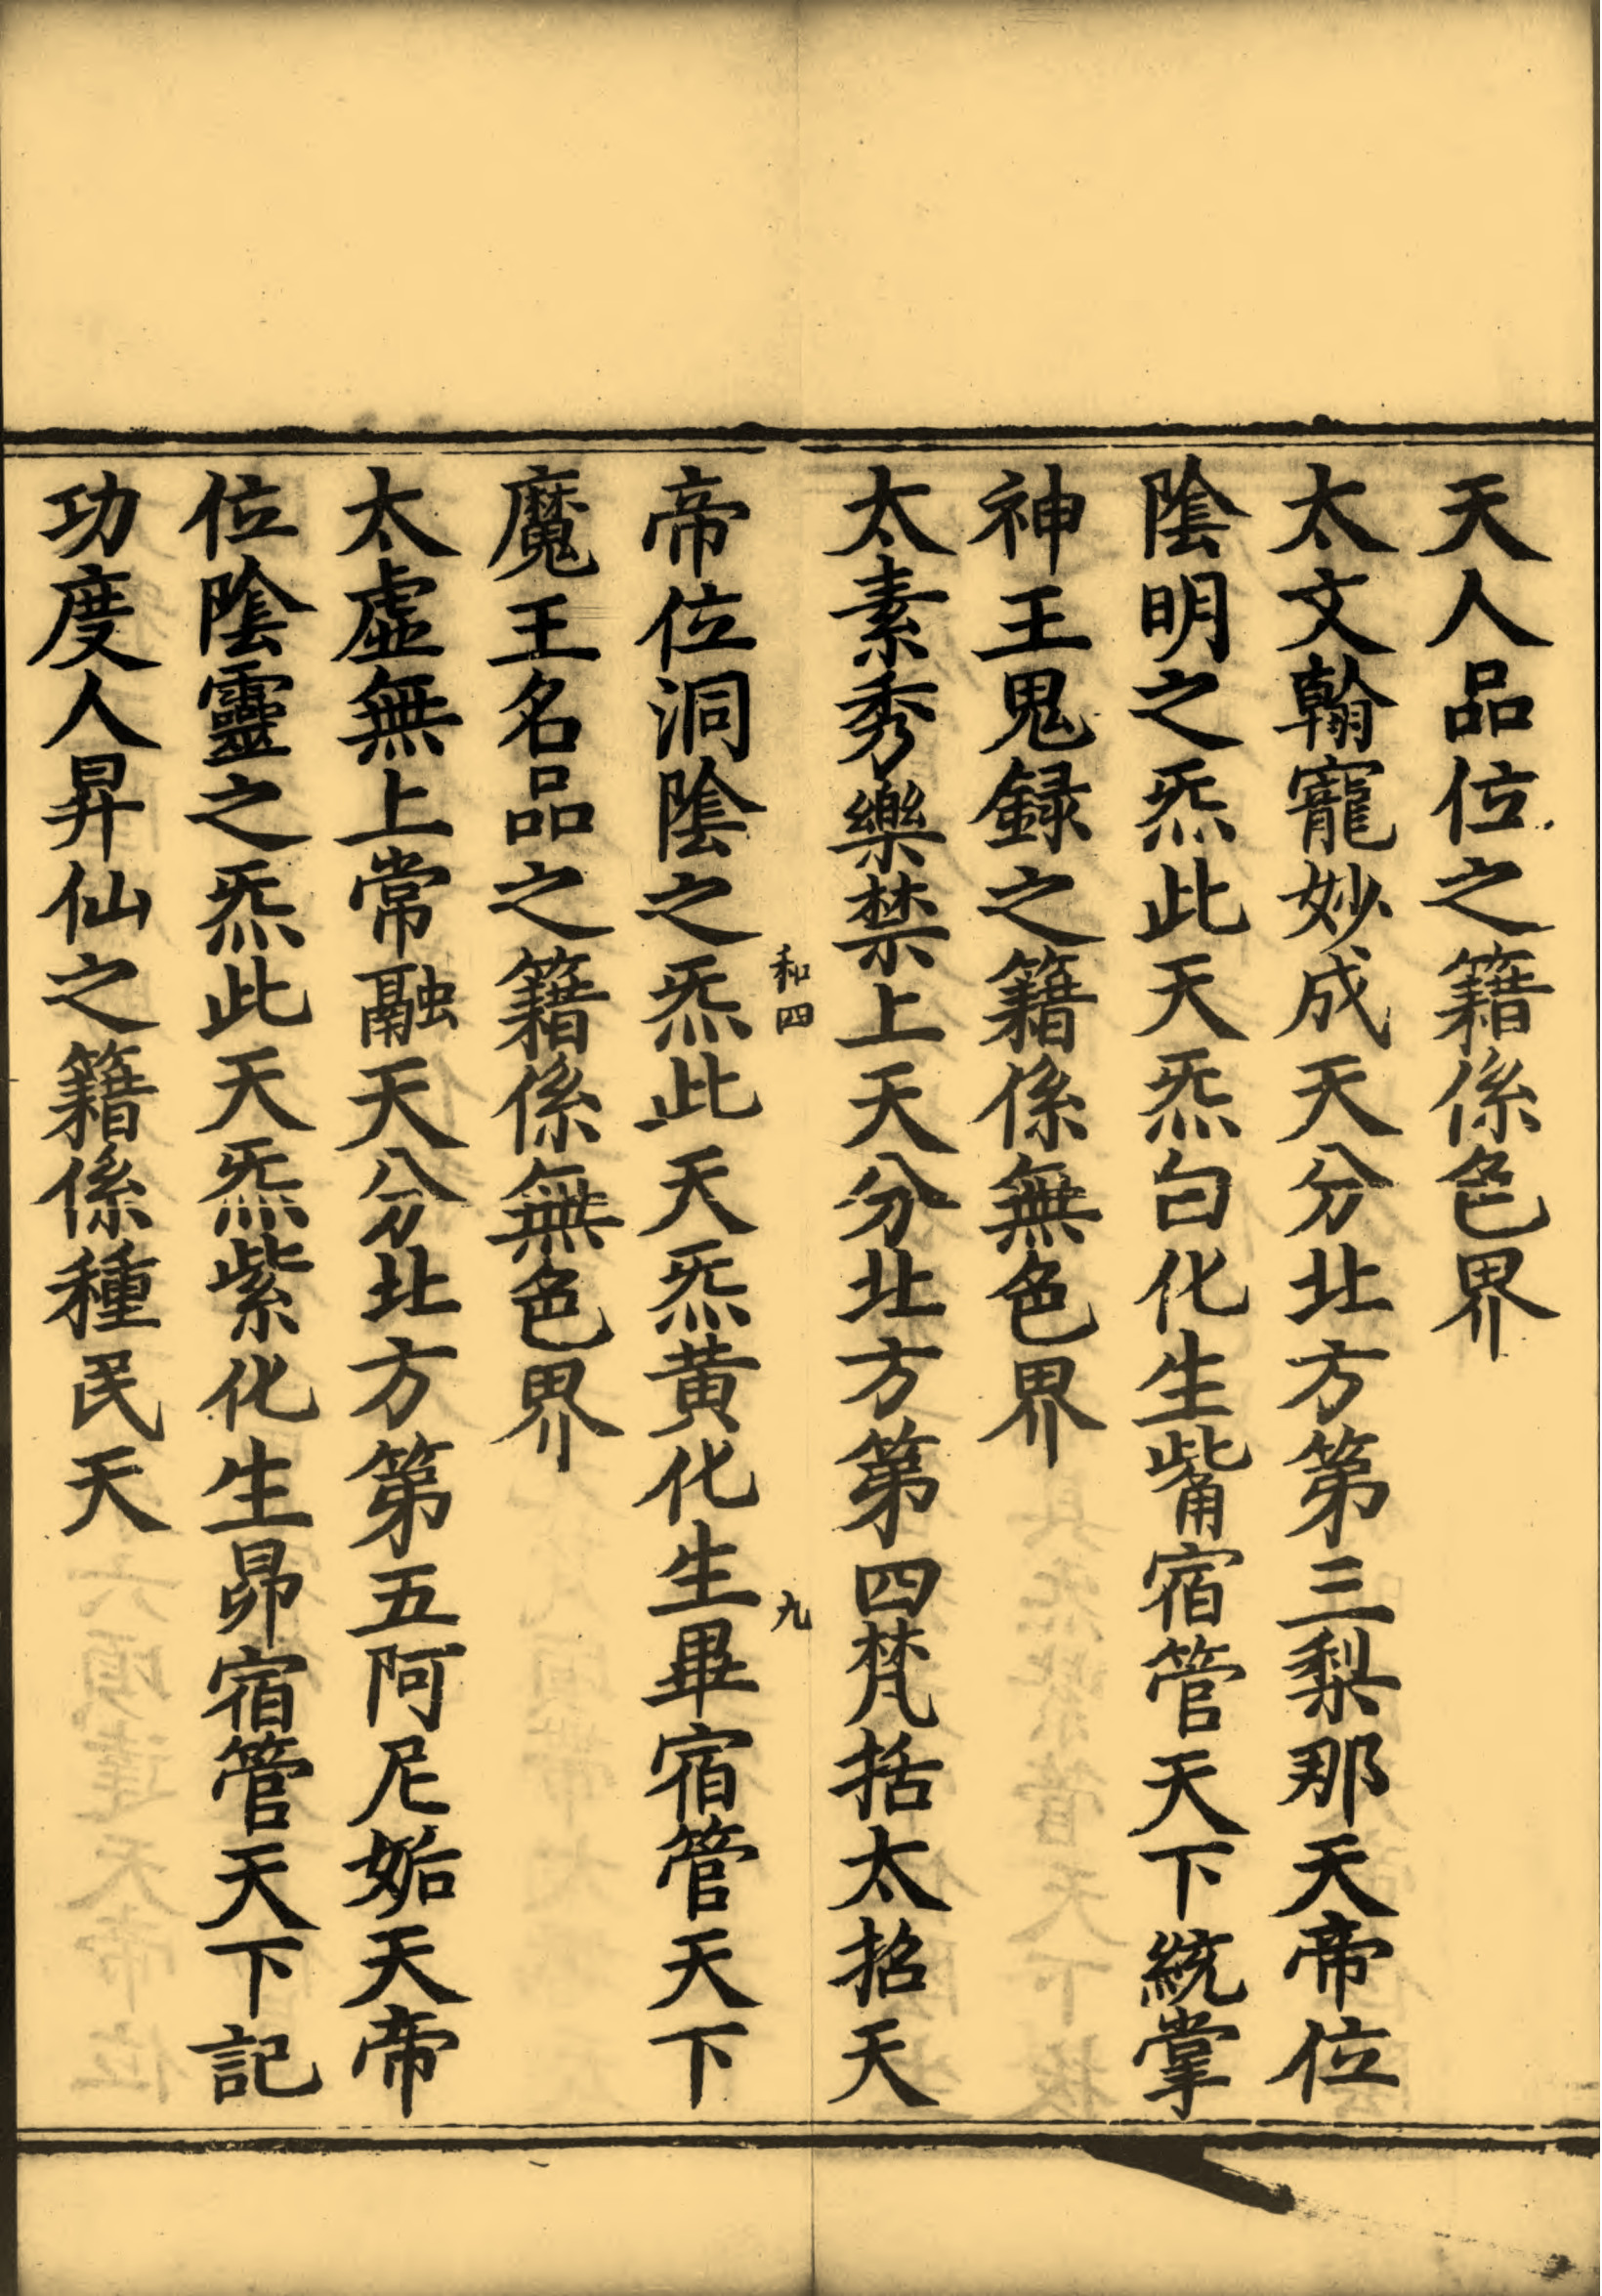 天人品位之籍係色界
太文翰寵妙成天分北方第三梨那天帝位
陰明之炁此天炁白化生觜宿管天下統掌
神王鬼録之籍係無色界
太素秀樂禁上天分北方第四梵括太招天
和四
九
帝位洞陰之炁此天炁黄化生畢宿管天下
魔王名品之籍係無色界
太虛無上常融天分北方第五阿尼姤天帝
位陰靈之炁此天炁紫化生昴宿管天下記
功度人昇仙之籍係種民天